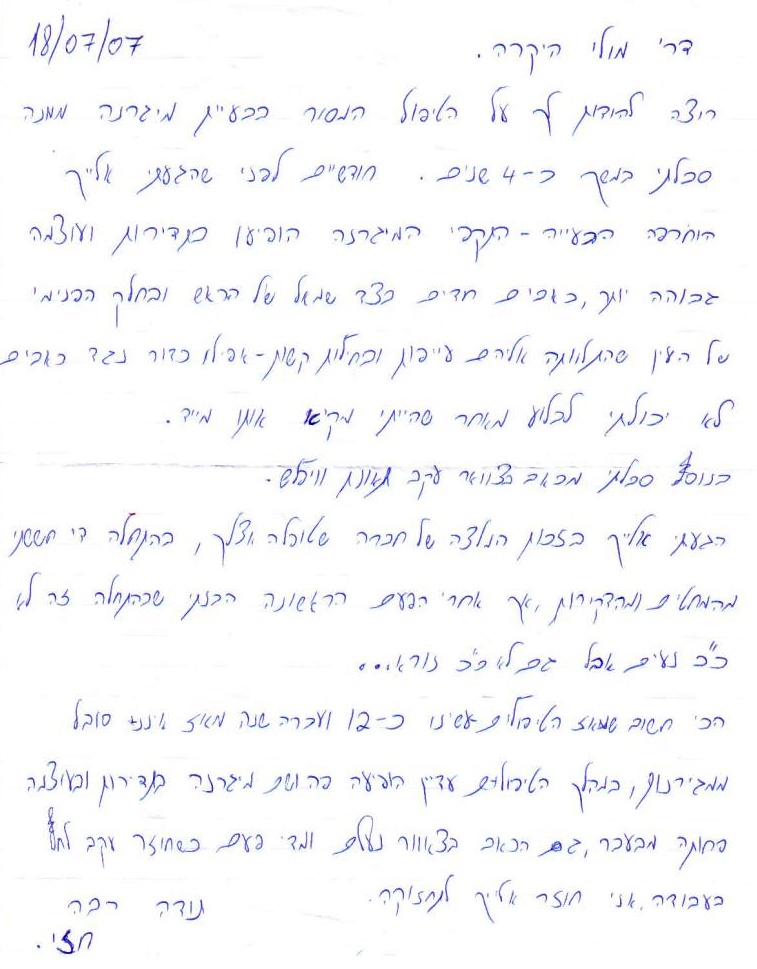 18/07/07
דר' מולי היקרה.
רוצה להודות לך על הטיפול המסור בבעיית מיגרנה ממנה
סבלתי במשך כ-4 שנים. חודשיים לפני שהגעתי אלייך
הוחרפה הבעייה - התקפי המיגרנה הופיעו בתדירות ועוצמה
גבוהה יותר, כאבים חדים בצד שמאל של הראש ובחלק הפנימי
של העין שהתלוותה אליהם עייפות ובחילות קשות-אפילו כדור נגד כאבים
לא יכולתי לבלוע מאחר שהייתי מקיא אותו מייד.
בנוסף סבלתי מכאב בצוואר עקב תאונת
הגעתי אלייך בזכות המלצה של חברה שטופלה אצלך, בהתחלה די חששתי
מהמחטים ומהדקירות, אך אחרי הפעם הראשונה הבנתי שבהתחלה זה לא
כ"כ נעים אבל גם לא כ"כ נורא...
הכי חשוב שמאז הטיפולים-עשינו כ-12 ועברה שנה מאז אינני סובל
ממגירנות, במהלך הטיפולים עדיין הופיעה פה ושם מיגרנה בתדירות ובעוצמה
פחותה מבעבר, גם הכאב בצאוור נעלם ומדי פעם כשחוזר עקב לחץ
בעבודה, אני חוזר אלייך לתחזוקה.
תודה רבה
חזי.